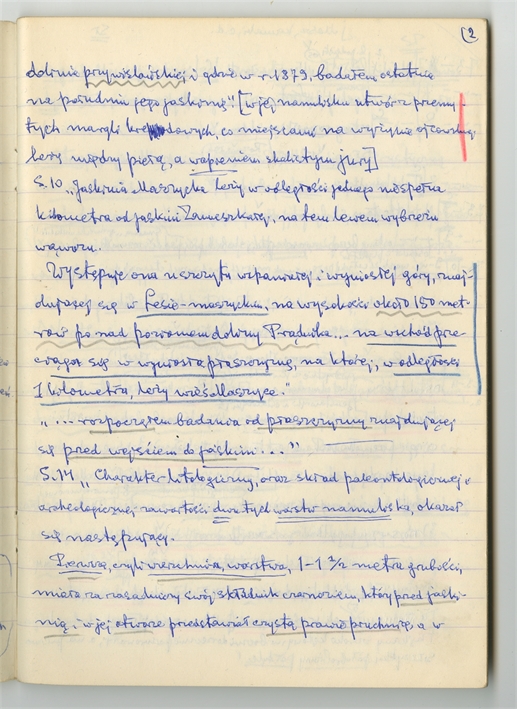 2
dolinie przywiślańskiej i gdzie w r. 1879, badałem ostatnią
na południu jego jaskinię." [w jej namulisku utwór z przemy-
tych margli kredowych, co miejscami na wyżynie ojcowskiej
leżą między pietą, a wapieniem skalistym jury]
S. 10 „Jaskinia Maszycka leży w odległości jednego niespełna
kilometra od jaskini Zameszkałej, na tem lewem wybrzeżu
wąwozu.
Występuje ona u szczytu wspaniałej i wyniosłej góry, znaj-
dującej się w Lesie-maszyckim, na wysokości około 150 met-
rów ponad poziomem doliny Prądnika... na wschód prze-
ciąga się wyniosła płaszczyzna, na której, w odległości
1 kilometra, leży wieś Maszyce."
„... rozpocząłem badania od płaszczyzny znajdującej
się przed wejściem do jaskini..."
S. 14 „Charakter litologiczny, oraz skład paleontologicznej i
archeologicznej zawartości dwu tych warstw namuliska, okazał
się następujący.
Pierwsza, czyli wierzchnia, warstwa, 1-1 1/2 metra grubości,
miała za zasadniczy swój składnik czarnoziem, który przed jaski-
nią, i w jej otworze przedstawiał czystą prawie próchnicę, a w